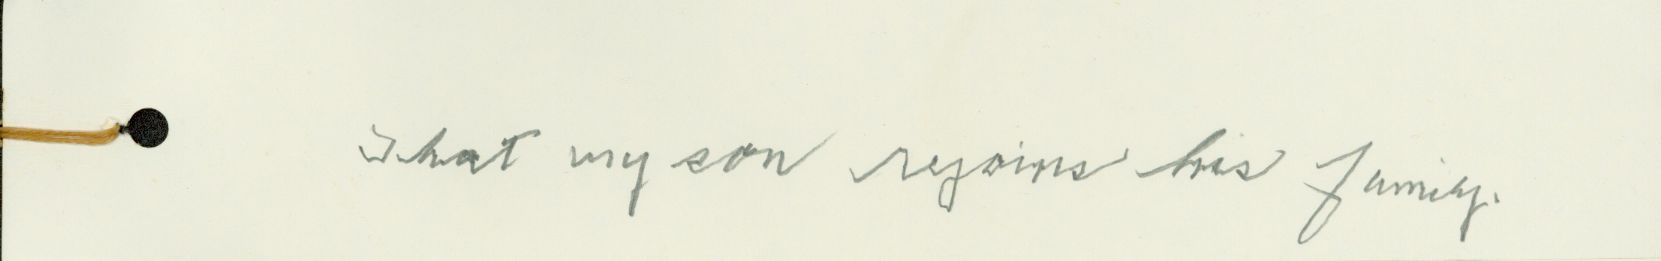 That my son rejoins his family.